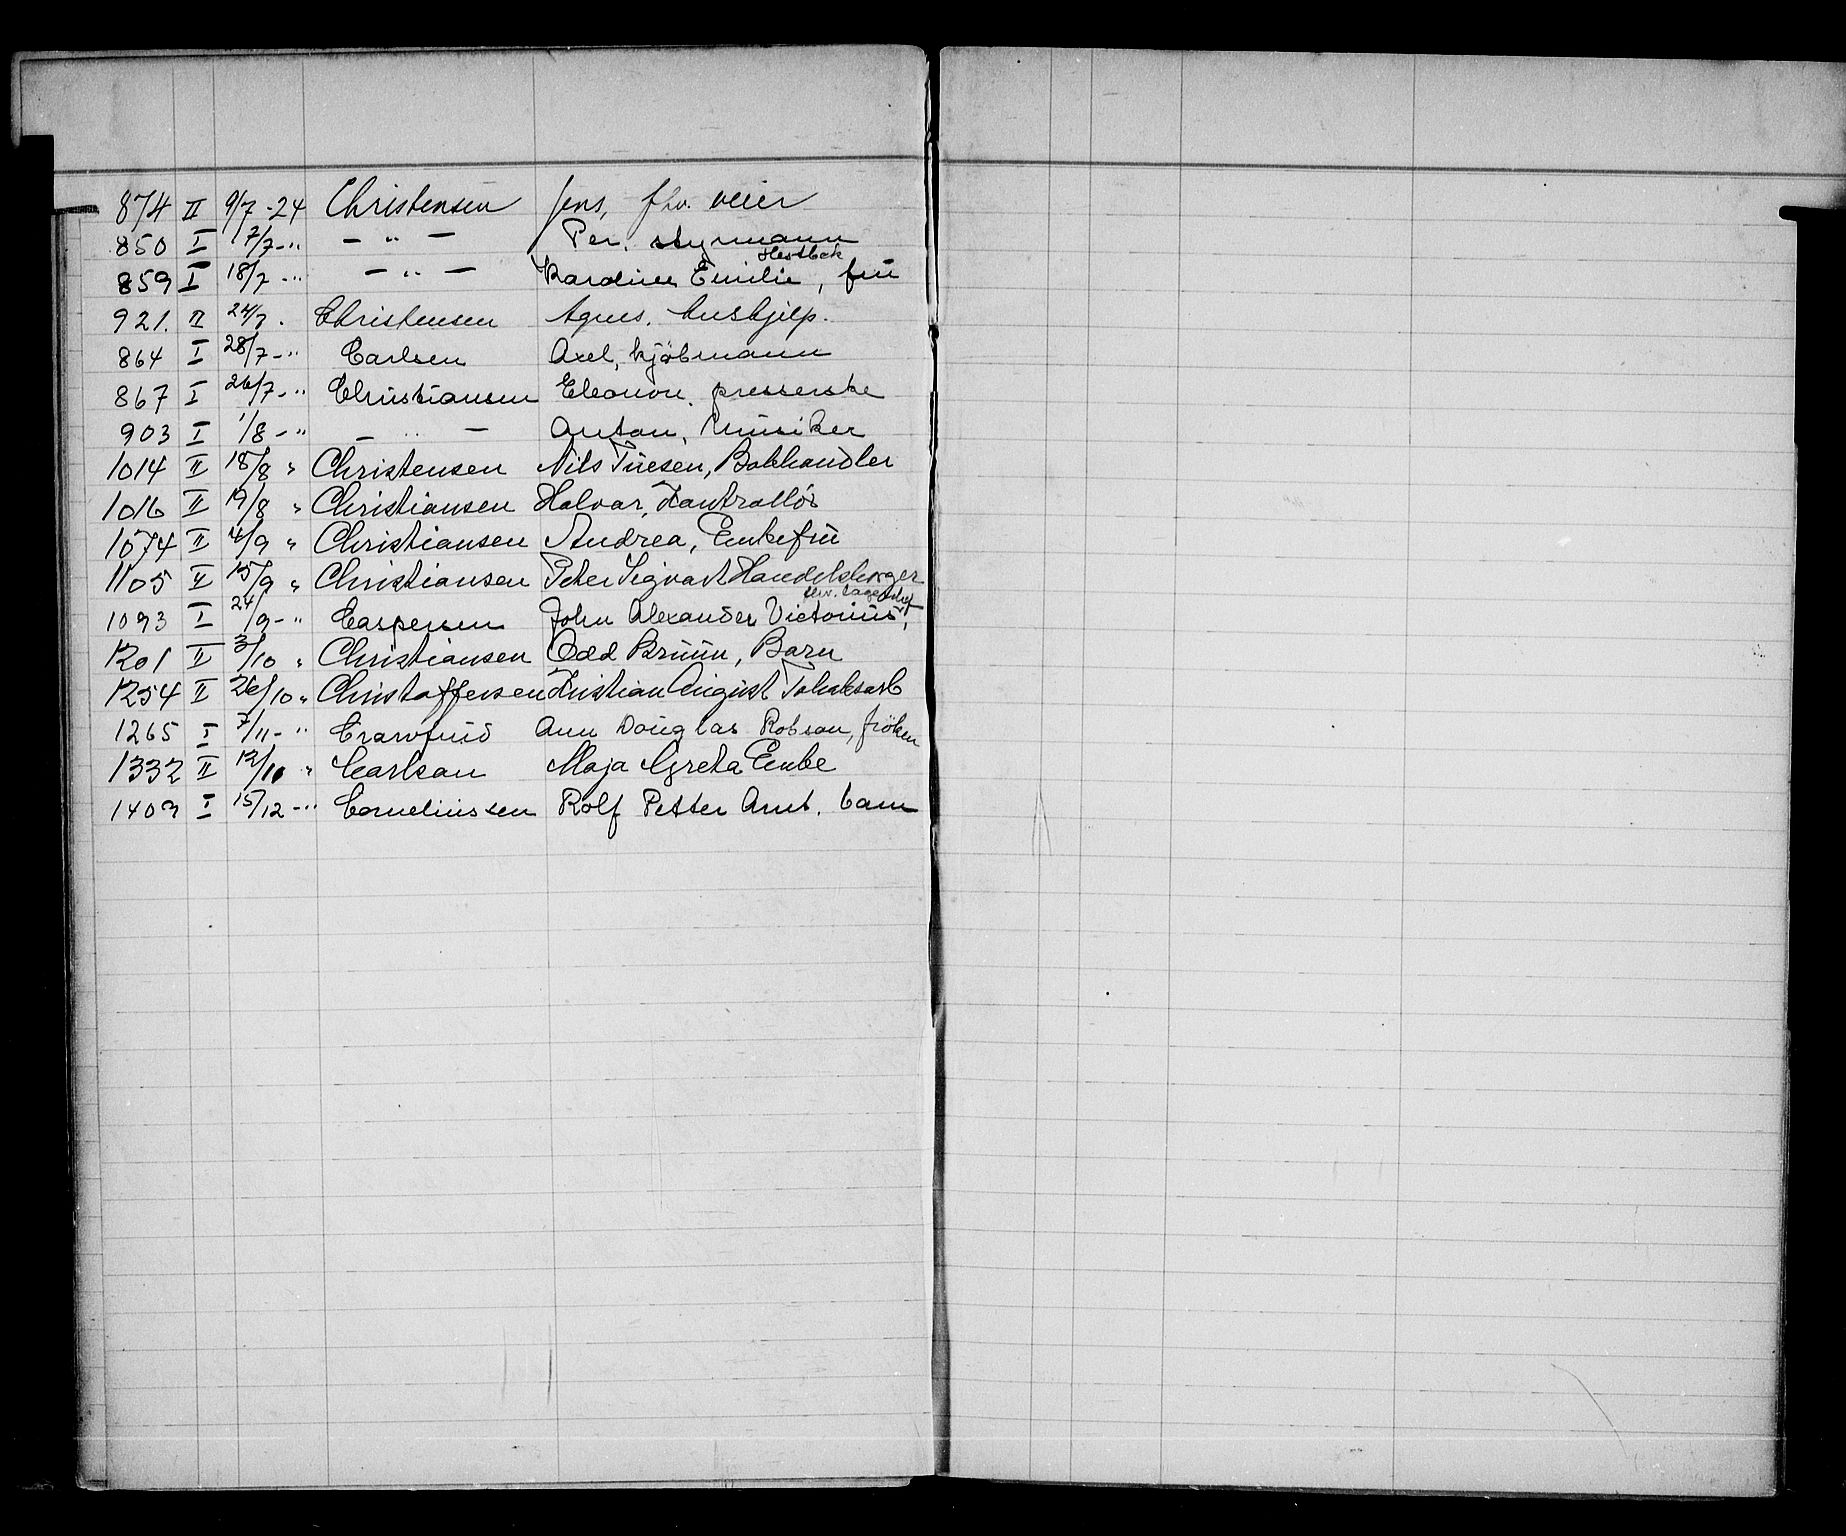 874 II 9/7 -24 Christensen Jens, fhv. veier
850 I 17/7 - " - " - Per. styrmann
Hestbek
859 I 18/7 - " - " - Karoline Emilie, frū
921. II 24/7. Christensen Agnes. hushjelp.
864 I 28/7 - " Carlsen Axel, kjöbmann
867 I 26/7 - " Christiansen Eleonor. presserske
903 I 1/8 - " - " - Anton, Mūsiker
1014 II 18/8 " Christensen Nils Tūesen, Bokhandler
1016 II 19/8 " Christiansen Halvar, Kontrollör
1074 II 4/9 " Christiansen Andrea, Enkefrū
1105 II 15/9 " Christiansen Peter Sigvart Handelsborger
fhv. lagersjef
1093 I 24/9 - " Caspersen John Alexander Victoriūs,
1201 II 3/10 " Christiansen Odd Brūūn, Barn
1254 II 26/10 " Christoffersen Kristian Aūgūst Tobaksarb
1265 I 7/11 - " Crawfūrd Ann Doūglas Robson, fröken
1332 II 12/10 " Carlson Maja Greta Enke
1403 I 15/12 - " Corneliūssen Rolf Petter Arnt. barn